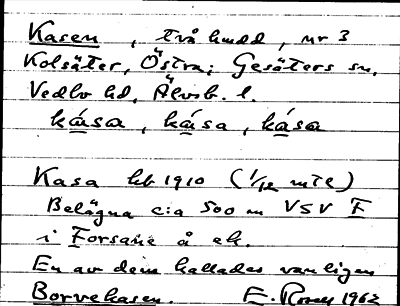 Kasen, två hmdd, nr 3
Kolsäter, Östra; Gesäters sn,
Vedbo hd, Älvsb. l.
kása, kása, kása
Kasa hb 1910 (1/12 mtl)
Belägna c:a 500 m VSV F
i Forsane å ek.
En av dem kallades vanligen
Borvekasen. E. Rosell 1962